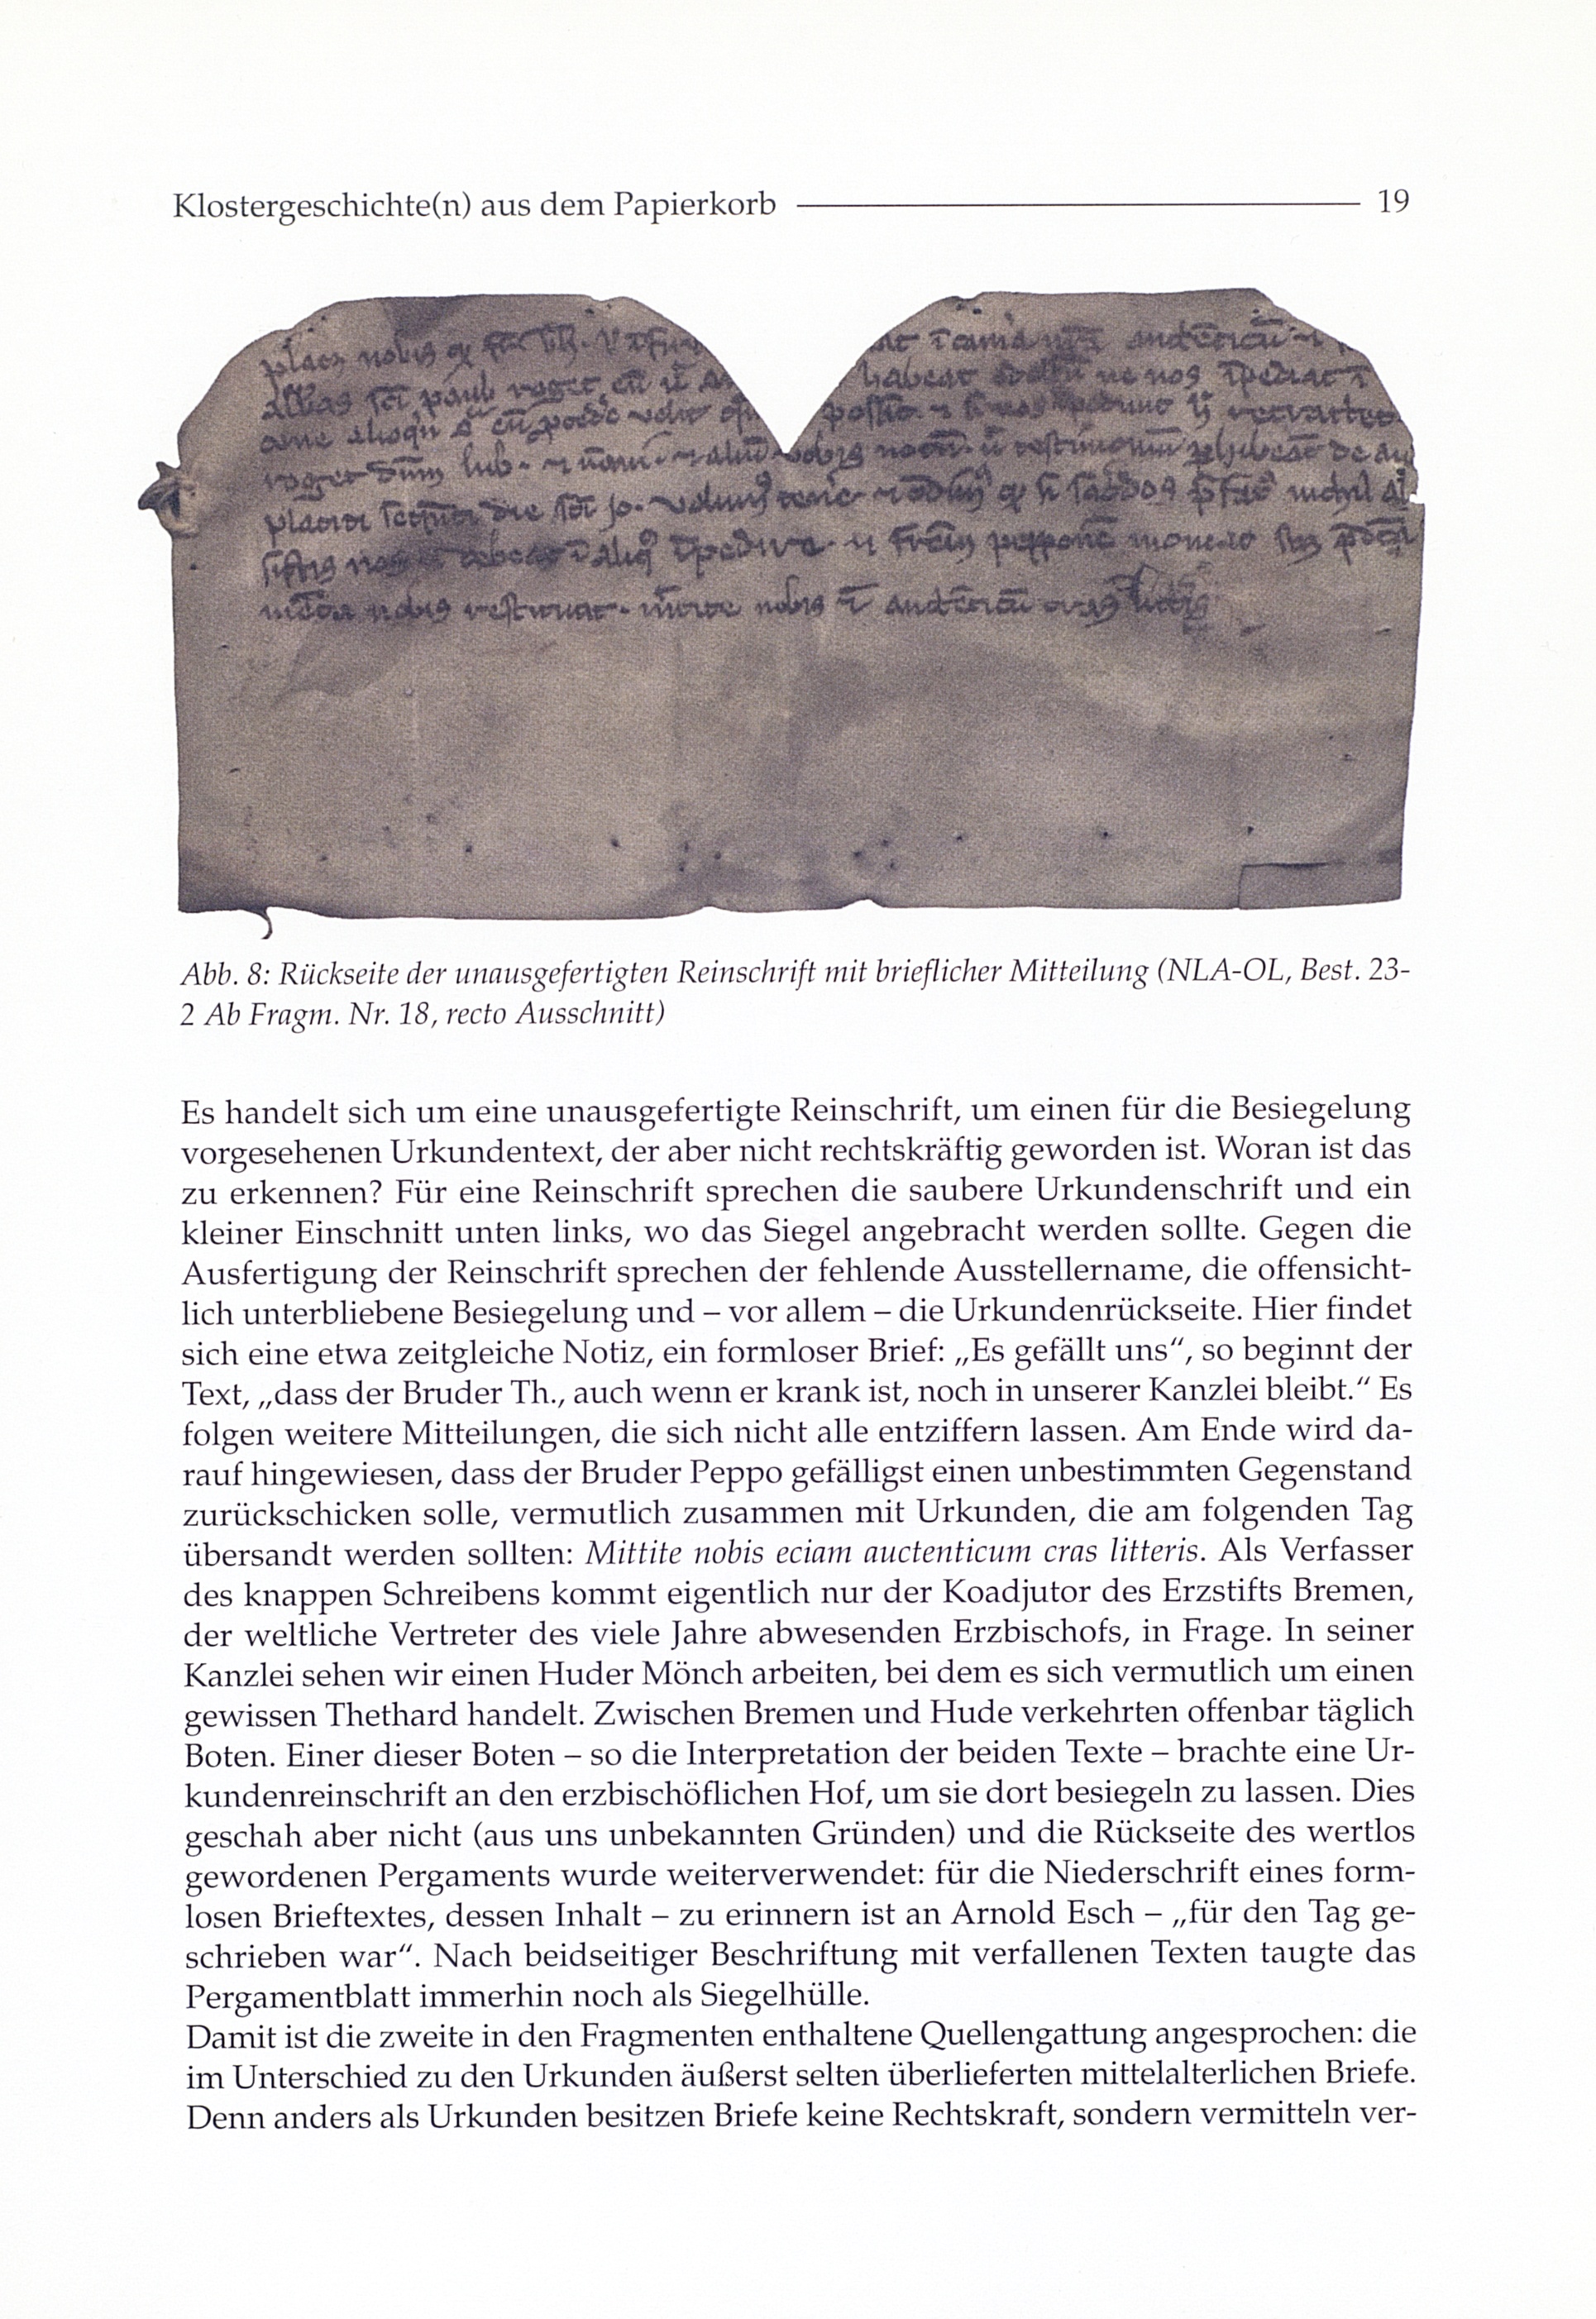 Klostergeschichte(n) aus dem Papierkorb 19
placz nobis
abbas paul
habeat ne nos
roget
nobis
Abb. 8: Rückseite der unausgefertigten Reinschrift mit brieflicher Mitteilung (NLA-OL, Best. 23-
2 Ab Fragm. Nr. 18, recto Ausschnitt)
Es handelt sich um eine unausgefertigte Reinschrift, um einen für die Besiegelung
vorgesehenen Urkundentext, der aber nicht rechtskräftig geworden ist. Woran ist das
zu erkennen? Für eine Reinschrift sprechen die saubere Urkundenschrift und ein
kleiner Einschnitt unten links, wo das Siegel angebracht werden sollte. Gegen die
Ausfertigung der Reinschrift sprechen der fehlende Ausstellername, die offensicht-
lich unterbliebene Besiegelung und – vor allem – die Urkundenrückseite. Hier findet
sich eine etwa zeitgleiche Notiz, ein formloser Brief: „Es gefällt uns“, so beginnt der
Text, „dass der Bruder Th., auch wenn er krank ist, noch in unserer Kanzlei bleibt.“ Es
folgen weitere Mitteilungen, die sich nicht alle entziffern lassen. Am Ende wird da-
rauf hingewiesen, dass der Bruder Peppo gefälligst einen unbestimmten Gegenstand
zurückschicken solle, vermutlich zusammen mit Urkunden, die am folgenden Tag
übersandt werden sollten: Mittite nobis eciam auctenticum cras litteris. Als Verfasser
des knappen Schreibens kommt eigentlich nur der Koadjutor des Erzstifts Bremen,
der weltliche Vertreter des viele Jahre abwesenden Erzbischofs, in Frage. In seiner
Kanzlei sehen wir einen Huder Mönch arbeiten, bei dem es sich vermutlich um einen
gewissen Thethard handelt. Zwischen Bremen und Hude verkehrten offenbar täglich
Boten. Einer dieser Boten – so die Interpretation der beiden Texte – brachte eine Ur-
kundenreinschrift an den erzbischöflichen Hof, um sie dort besiegeln zu lassen. Dies
geschah aber nicht (aus uns unbekannten Gründen) und die Rückseite des wertlos
gewordenen Pergaments wurde weiterverwendet: für die Niederschrift eines form-
losen Brieftextes, dessen Inhalt – zu erinnern ist an Arnold Esch – „für den Tag ge-
schrieben war“. Nach beidseitiger Beschriftung mit verfallenen Texten taugte das
Pergamentblatt immerhin noch als Siegelhülle.
Damit ist die zweite in den Fragmenten enthaltene Quellengattung angesprochen: die
im Unterschied zu den Urkunden äußerst selten überlieferten mittelalterlichen Briefe.
Denn anders als Urkunden besitzen Briefe keine Rechtskraft, sondern vermitteln ver-